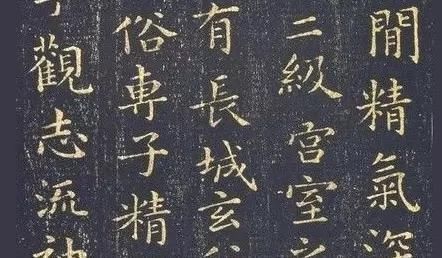 閒精氣深
二級宮室之
有長城玄谷
俗專子精
觀志流神